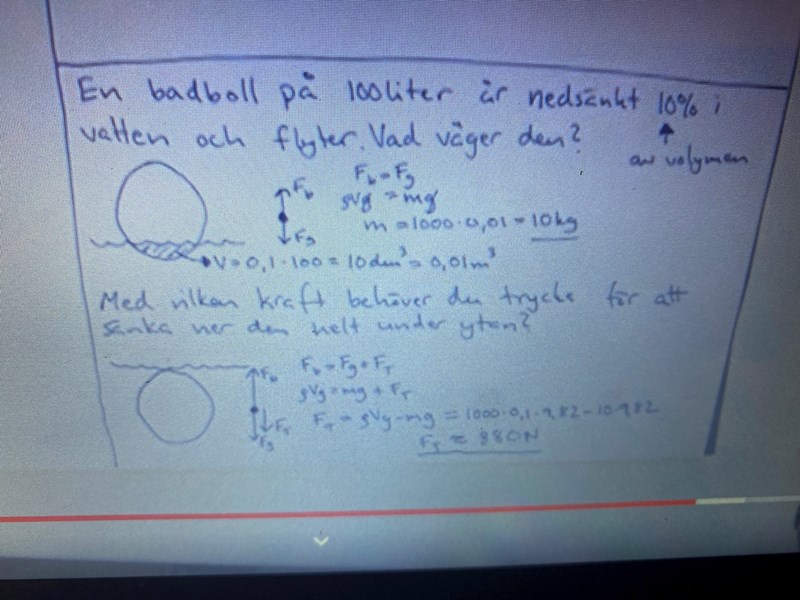 En badboll på 100 liter är nedsänkt 10% i
av volymen
vatten och flyter. Vad väger den?
F_b
F_g
F_b = F_g
ρVg = mg
m = 1000·0,01 = 10kg
V = 0,1·100 = 10dm³ = 0,01m³
Med vilken kraft behöver du trycka för att
sänka ner den helt under ytan?
F_b
F_T
F_g
F_b = F_g + F_T
ρVg = mg + F_T
F_T = ρVg - mg = 1000·0,1·9,82 - 10·9,82
F_T ≈ 880N